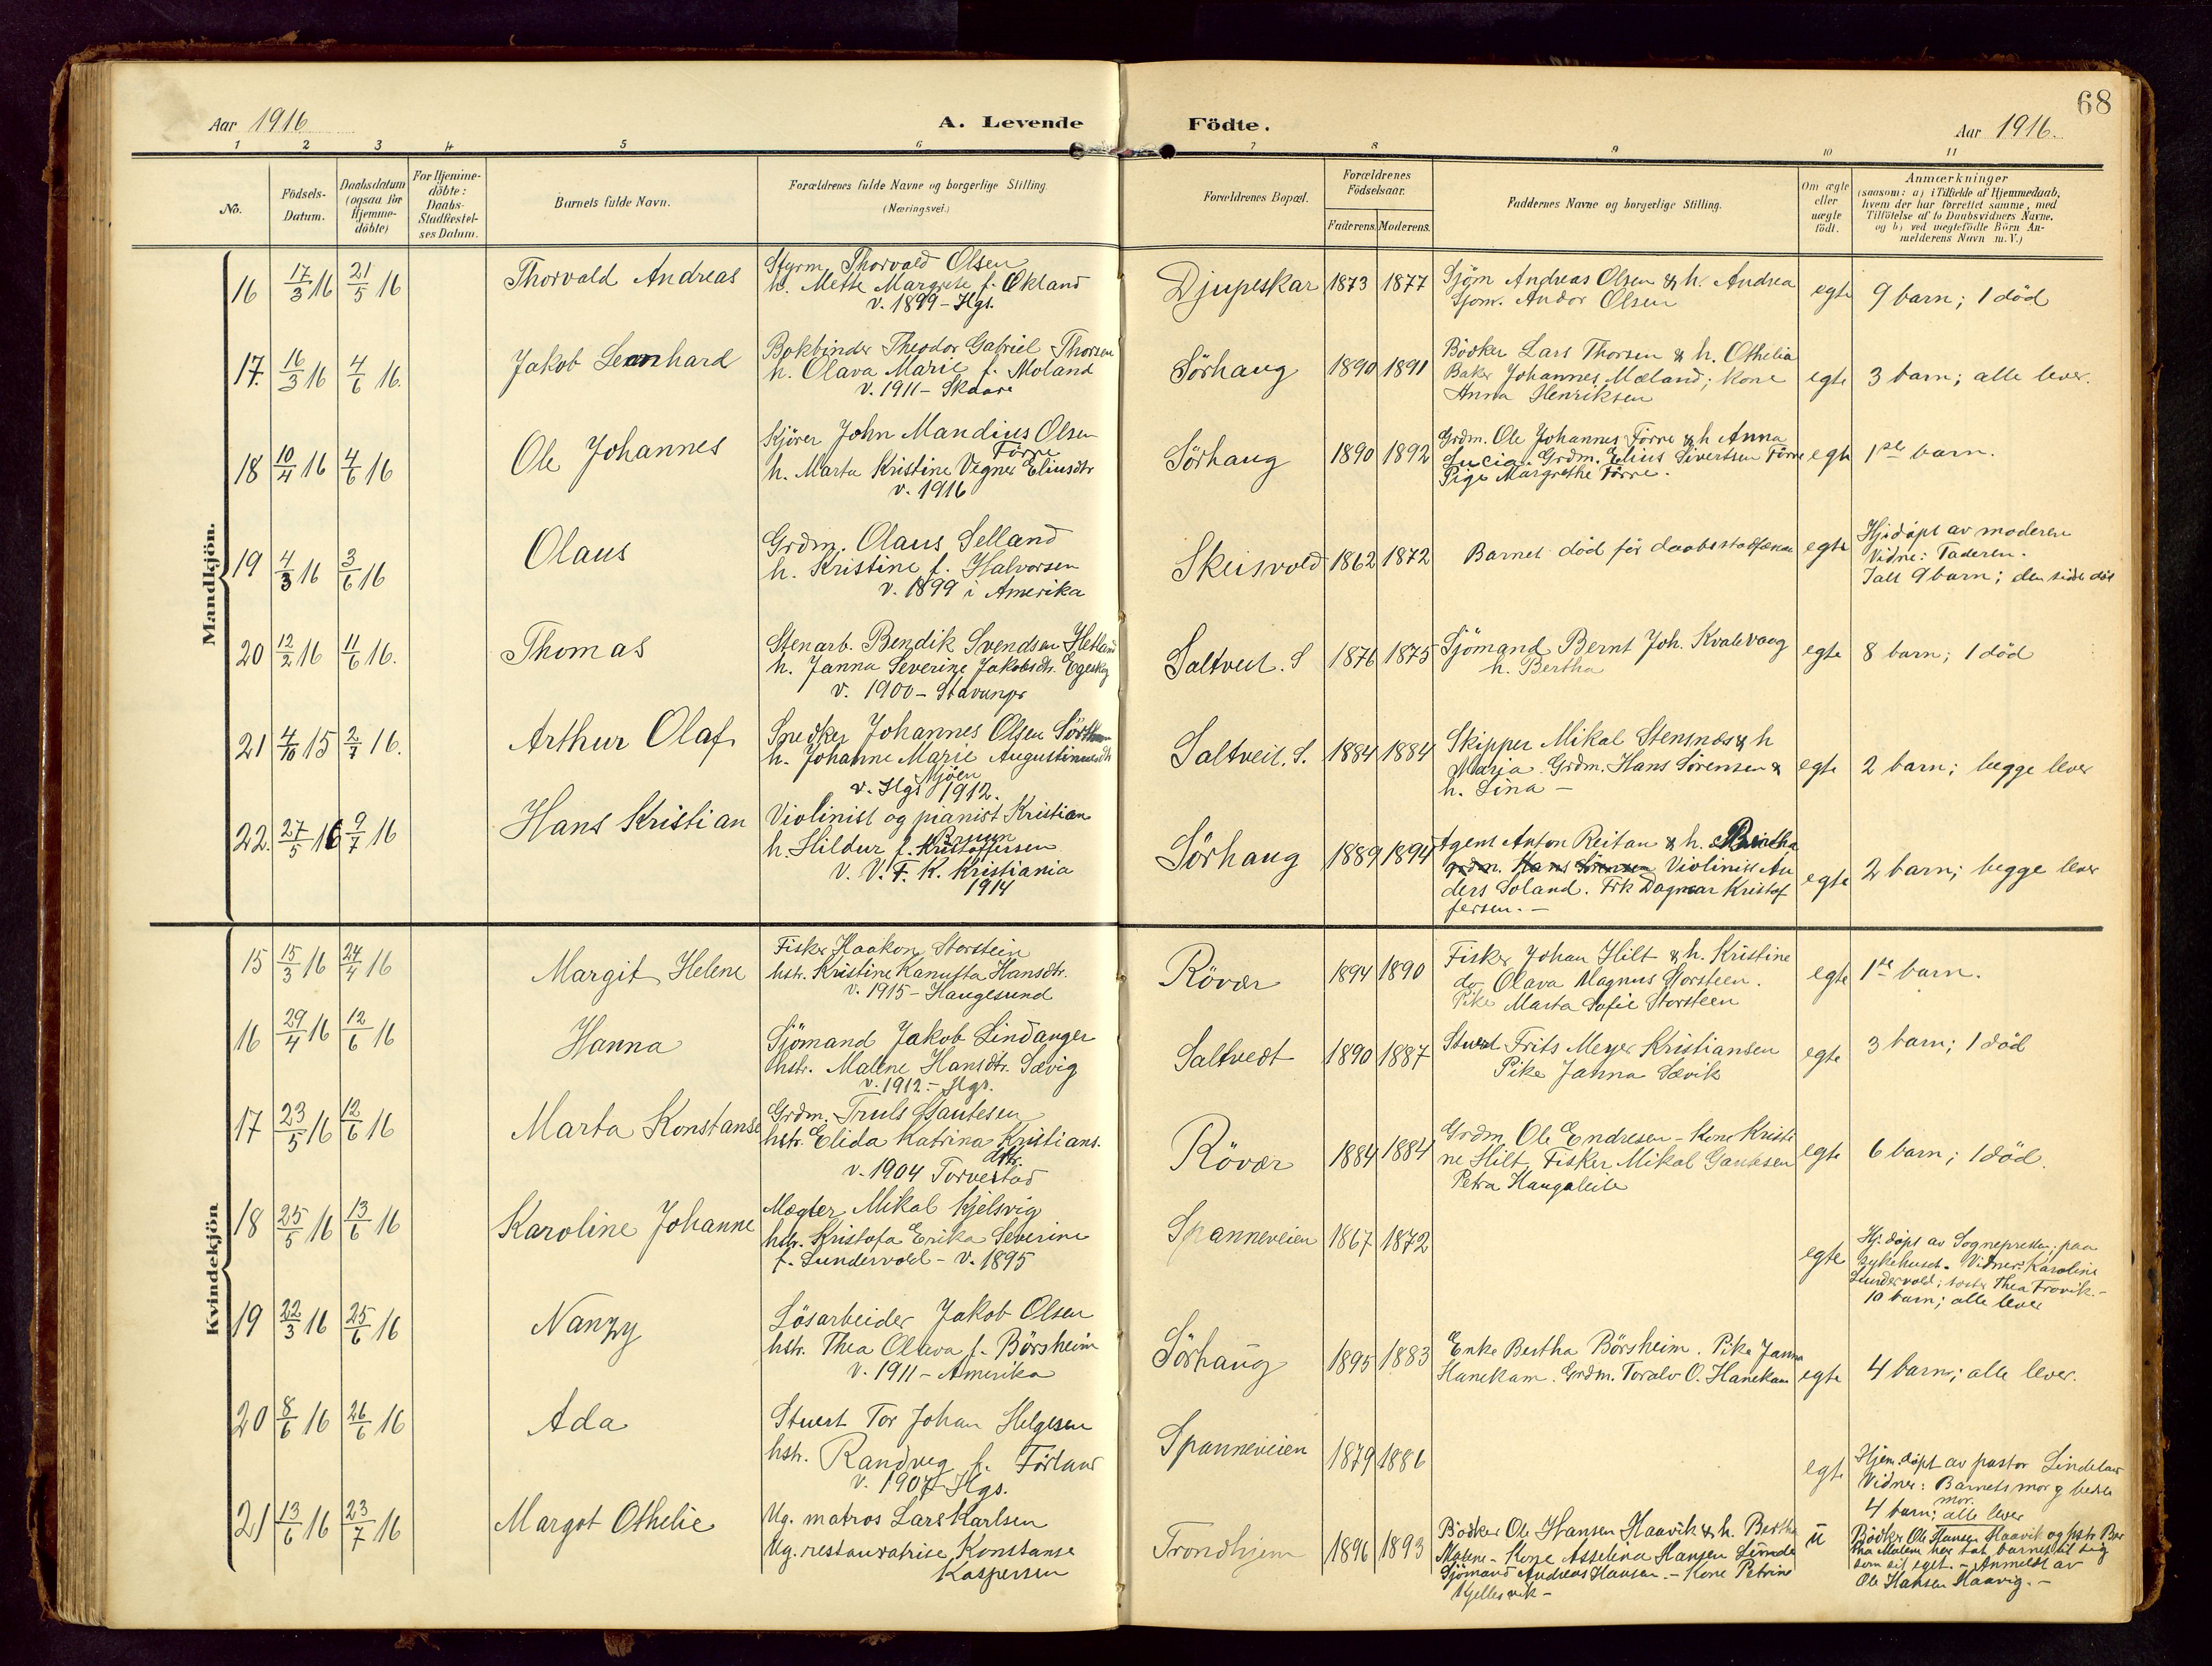 68
Aar 1916
A. Levende
Födte.
Aar 1916.
1 2 3 4 5 6 7 8 9 10 11
No.
Födsels-
Datum.
Daabsdatum
(ogsaa for
Hjemme-
döbte)
For Hjemme-
döbte:
Daabs-
Stadfæstel-
ses Datum.
Barnets fulde Navn.
Forældrenes fulde Navne og borgerlige Stilling.
(Næringsvei.)
Forældrenes Bopæl.
Forældrenes
Födselsaar.
Faderens. Moderens.
Faddernes Navne og borgerlige Stilling.
Om ægte
eller
uægte
födt.
Anmærkninger
(saasom: a) i Tilfælde af Hjemmedaab,
hvem der har forrettet samme, med
Tilföielse af to Daabsvidners Navne.
og b) ved uægtefödte Börn An-
melderens Navn m. V.)
Mandkjön.
16 17/3 16 21/5 16 Thorvald Andreas
Styrm. Thorvald Olsen
h. Mette Margrete f. Økland
v. 1899 - Hgs.
Djupeskar 1873 1877
Sjöm Andreas Olsen & h. Andrea
Sjom. Andor Olsen
egte 9 barn; 1 död
17. 16/3 16 4/6 16. Jakob Leonhard
Bokbinder Theodor Gabriel Thorsen
h. Olava Marie f. Moland
v. 1911 - Skaare
Sörhaug 1890 1891
Bödker Lars Thorsen & h. Othelia
Baker Johannes Mæland; kone
Anna Henriksen
egte 3 barn; alle lever.
18 10/4 16 4/6 16 Ole Johannes
Kjörer John Mandius Olsen
Förre
h. Marta Kristine Vegner Eliusdtr
v. 1916
Sörhaug 1890 1892
Grdm. Ole Johannes Förre & h Anna
Lucia. Grdm. Elius Sivertsen Förre
Pige Margrethe Förre.
egte 1ste barn.
19 4/3 16 3/6 16 Olaus
Grdm. Olaus Selland
h. Kristine f. Halvorsen
v. 1899 i Amerika
Skeisvold 1862 1872
Barnet död för daabsstadfæst
egte
Hjdöpt av moderen
Vidne: Faderen.
Ialt 9 barn; den sidste död
20 12/2 16 11/6 16. Thomas
Stenarb. Bendik Svendsen Hetland
h. Janna Severine Jakobsdtr. Egeskog
v. 1900 - Stavanger
Saltveit. S 1876 1875
Sjömand Bernt Joh. Kvalevaag
h. Bertha
egte 8 barn; 1 död
21 4/10 15 2/7 16. Arthur Olaf
Snedker Johannes Olsen
h. Johanne Marie Augustinusdtr
Mjöen
v. Hgs 1912.
Saltveit. S. 1884 1884
Skipper Mikal Stensnæs & h
Maria. Grdm. Hans Sörensen &
h. Lina -
egte 2 barn; begge lever
22. 27/5 16 9/7 16 Hans Kristian
Violinist og pianist Kristian
Bruun
h. Hildur f. Kristoffersen
V. V. F. K. Kristiania
1914
Sörhaug 1889 1894
Agent Anton Reitan & h. Bertha
Grdm. Hans Sörensen Violinist An
ders Soland. Frk Dagmar Kristof
fersen. -
egte 2 barn; begge lever
Kvindekjön
15 15/3 16 24/4 16 Margit Helene
Fisker Haakon Storstein
hstr. Kristine Kanutta Hansdtr.
v. 1915 - Haugesund
Rövær 1894 1890
Fisker Johan Hilt & h. Kristine
do Olava Magnus Storsteen.
Pike Marta Sofie Storsteen
egte 1ste barn.
16 29/4 16 12/6 16 Hanna
Sjömand Jakob Lindanger
hstr. Malene Hansdtr. Sævig
v. 1912 - Hgs.
Saltvedt 1890 1887
Stuert Frits Meyer Kristiansen
Pike Janna Sævik
egte 3 barn; 1 död
17 23/5 16 12/6 16 Marta Konstanse
Grdm. Truls Gautesen
hstr. Elida Katrina Kristians.
dttr.
v. 1904 Torvestad
Rövær 1884 1884
Grdm. Ole Endresen - Kone Kristi
ne Hilt. Fisker Mikal Gautesen
Petra Haugaleite
egte 6 barn; 1 död.
18 25/5 16 13/6 16 Karoline Johanne
Mægler Mikal Kjelsvig
hstr. Kristofa Erika Severine
f. Sundervold - v. 1895
Spanneveien 1867 1872
egte
Hj. döpt av Sogneprestn; paa
sykehuset. Vidner: Karoline
Sundervold; söster Thea Frovik. -
10 barn; alle lever
19 22/3 16 25/6 16 Nanzy
Lösarbeider Jakob Olsen
hstr. Thea Olava f. Börsheim
v. 1911 - Amerika
Sörhaug 1895 1883
Enke Bertha Börsheim. Pike Janna
Hanekam. Grdm. Toralv O. Hanekam
egte 4 barn; alle lever.
20 8/6 16 26/6 16 Ada
Stuert Tor Johan Helgesen
hstr. Randveg f. Förland
v. 1907 Hgs.
Spanneveien 1879 1886
egte
Hjem. döpt av pastor Lindeland
Vidner: Barnets mor og beste
mor.
4 barn; alle lever
21 13/6 16 23/7 16 Margot Othelie
Ug. matros Lars Karlsen
Ug. restauratrise Konstanse
Kaspersen
Trondhjem 1896 1893
Bödker Ole Hansen Haavik & h. Bertha
Malene - Kone Asselina Hansen Lunde
Sjömand Andreas Hansen. - Kone Petrine
Kjellesvik -
u
Bödker Ole Hansen Haavik og hstr. Ber
tha Malene har tat barnet til sig
som sit eget. - Anmeldt av
Ole Hansen Haavig. -